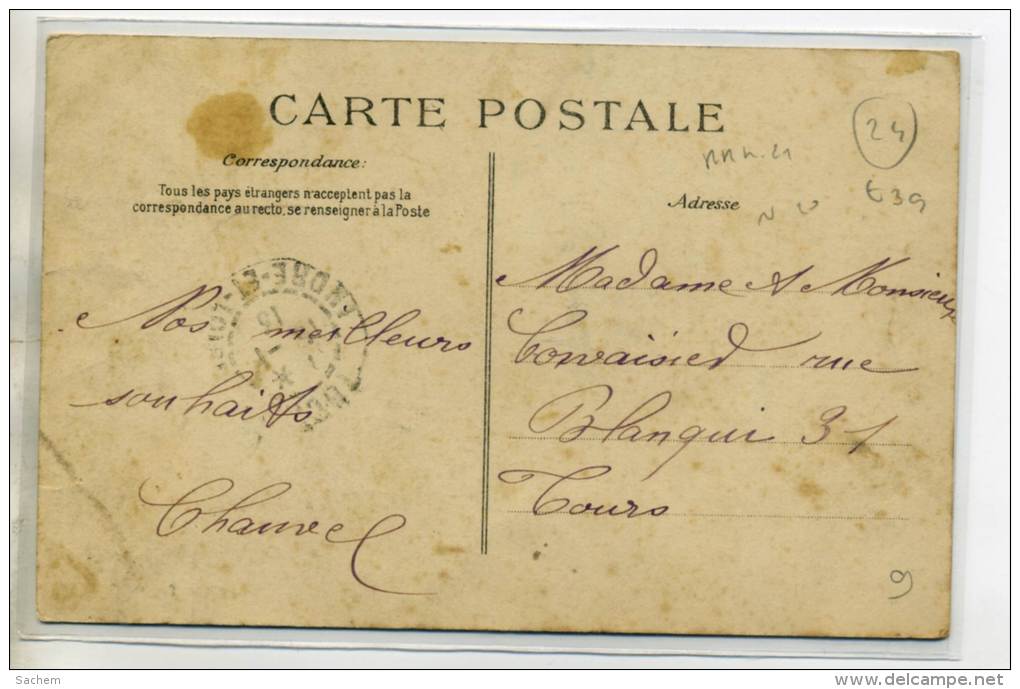 CARTE POSTALE
Correspondance:
Tous les pays étrangers n'acceptent pas la
correspondance au recto, se renseigner à la Poste
Nos meilleurs
souhaits
Chauvel
INDRE-ET-LOIRE
24
Adresse
N 20
€ 39
Madame & Monsieur
rue
Blanqui 31
Tours
9
Sachem
delcampe.net